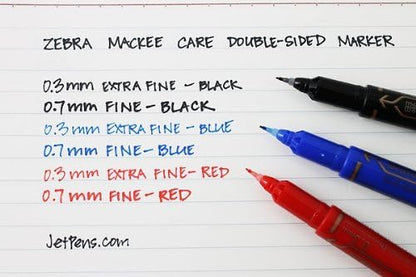 ZEBRA MACKEE CARE DOUBLE-SIDED MARKER
0.3mm EXTRA FINE - BLACK
0.7mm FINE - BLACK
0.3mm EXTRA FINE - BLUE
0.7mm FINE - BLUE
0.3mm EXTRA FINE - RED
0.7mm FINE - RED
JetPens.com